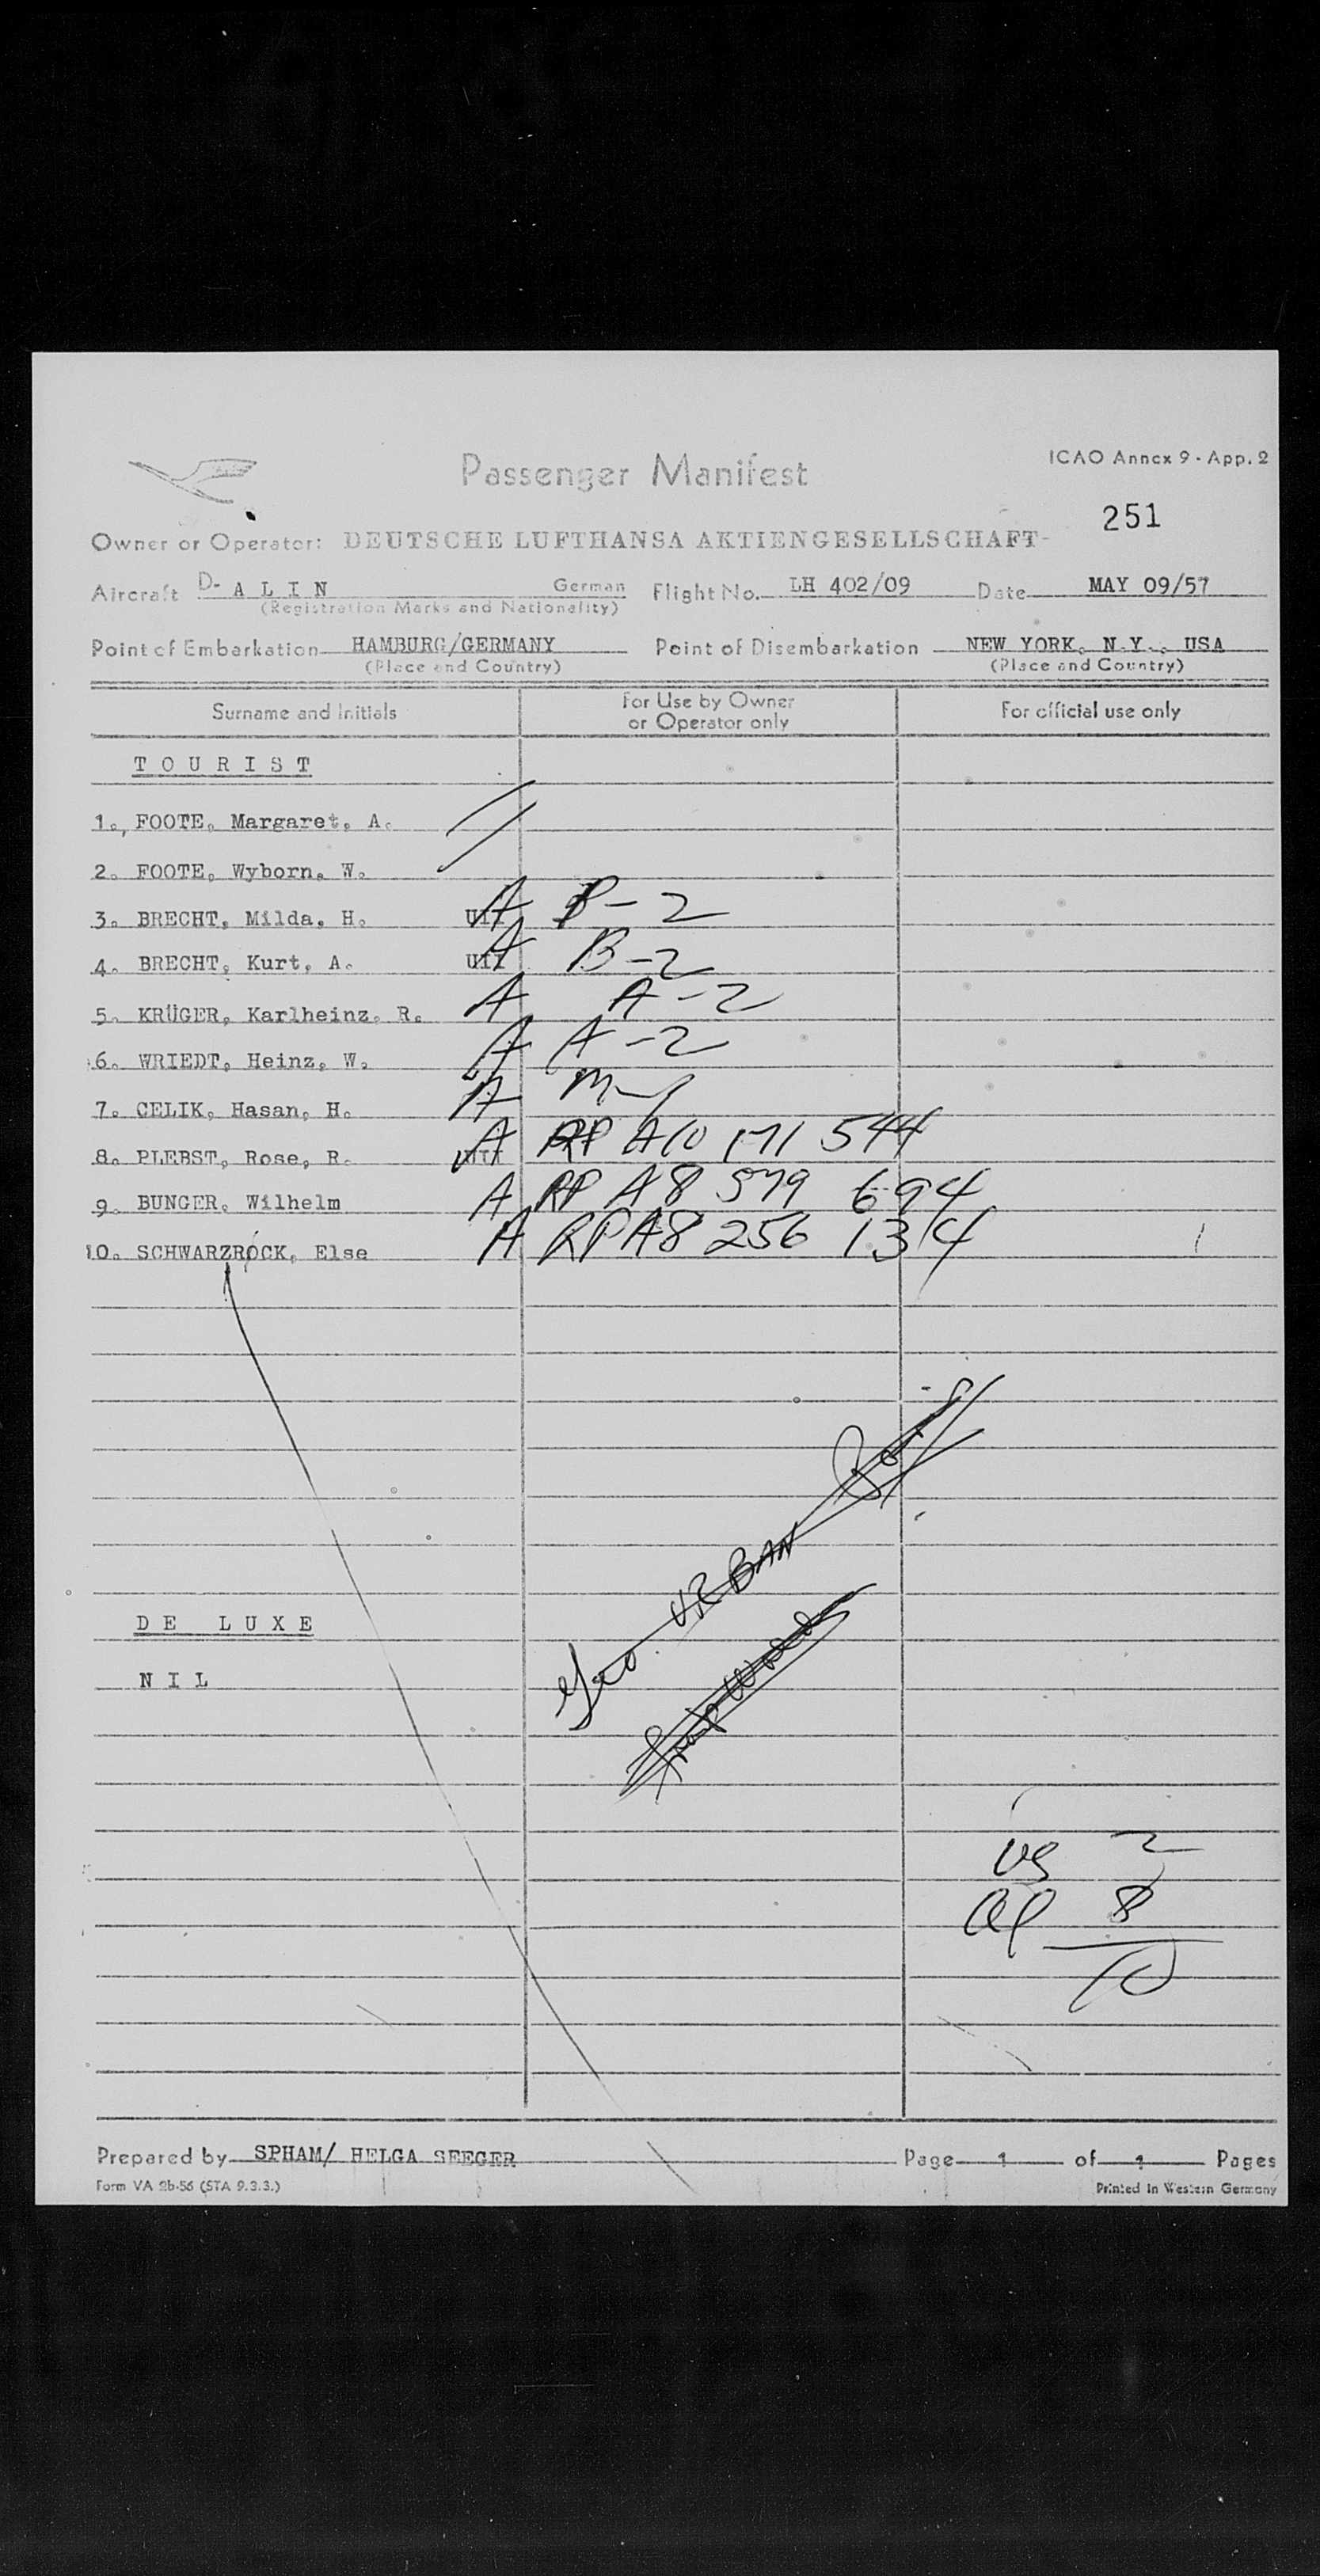 Passenger Manifest
ICAO Annex 9 - App. 2
251
Owner or Operator: DEUTSCHE LUFTHANSA AKTIENGESELLSCHAFT-
Aircraft D- A L I N German Flight No. LH 402/09 Date MAY 09/57
(Registration Marks and Nationality)
Point of Embarkation HAMBURG/GERMANY Point of Disembarkation NEW YORK, N.Y., USA
(Place and Country) (Place and Country)
Surname and Initials For Use by Owner or Operator only For official use only
T O U R I S T
1., FOOTE, Margaret, A.
2. FOOTE, Wyborn, W.
3. BRECHT, Milda, H. A B-2
4. BRECHT, Kurt, A. A B-2
5. KRÜGER, Karlheinz, R. A A-2
6. WRIEDT, Heinz, W. A A-2
7. CELIK, Hasan, H. A
8. PLEBST, Rose, R. A RP A10 171 544
9. BUNGER, Wilhelm A RP A8 579 694
10. SCHWARZROCK, Else A RP A8 256 134
Geo. URBAN
D E L U X E
N I L
US 2
Al 8
10
Prepared by SPHAM/ HELGA SEEGER Page 1 of 1 Pages
Form VA 2b-56 (STA 9.3.3.) Printed in Western Germany